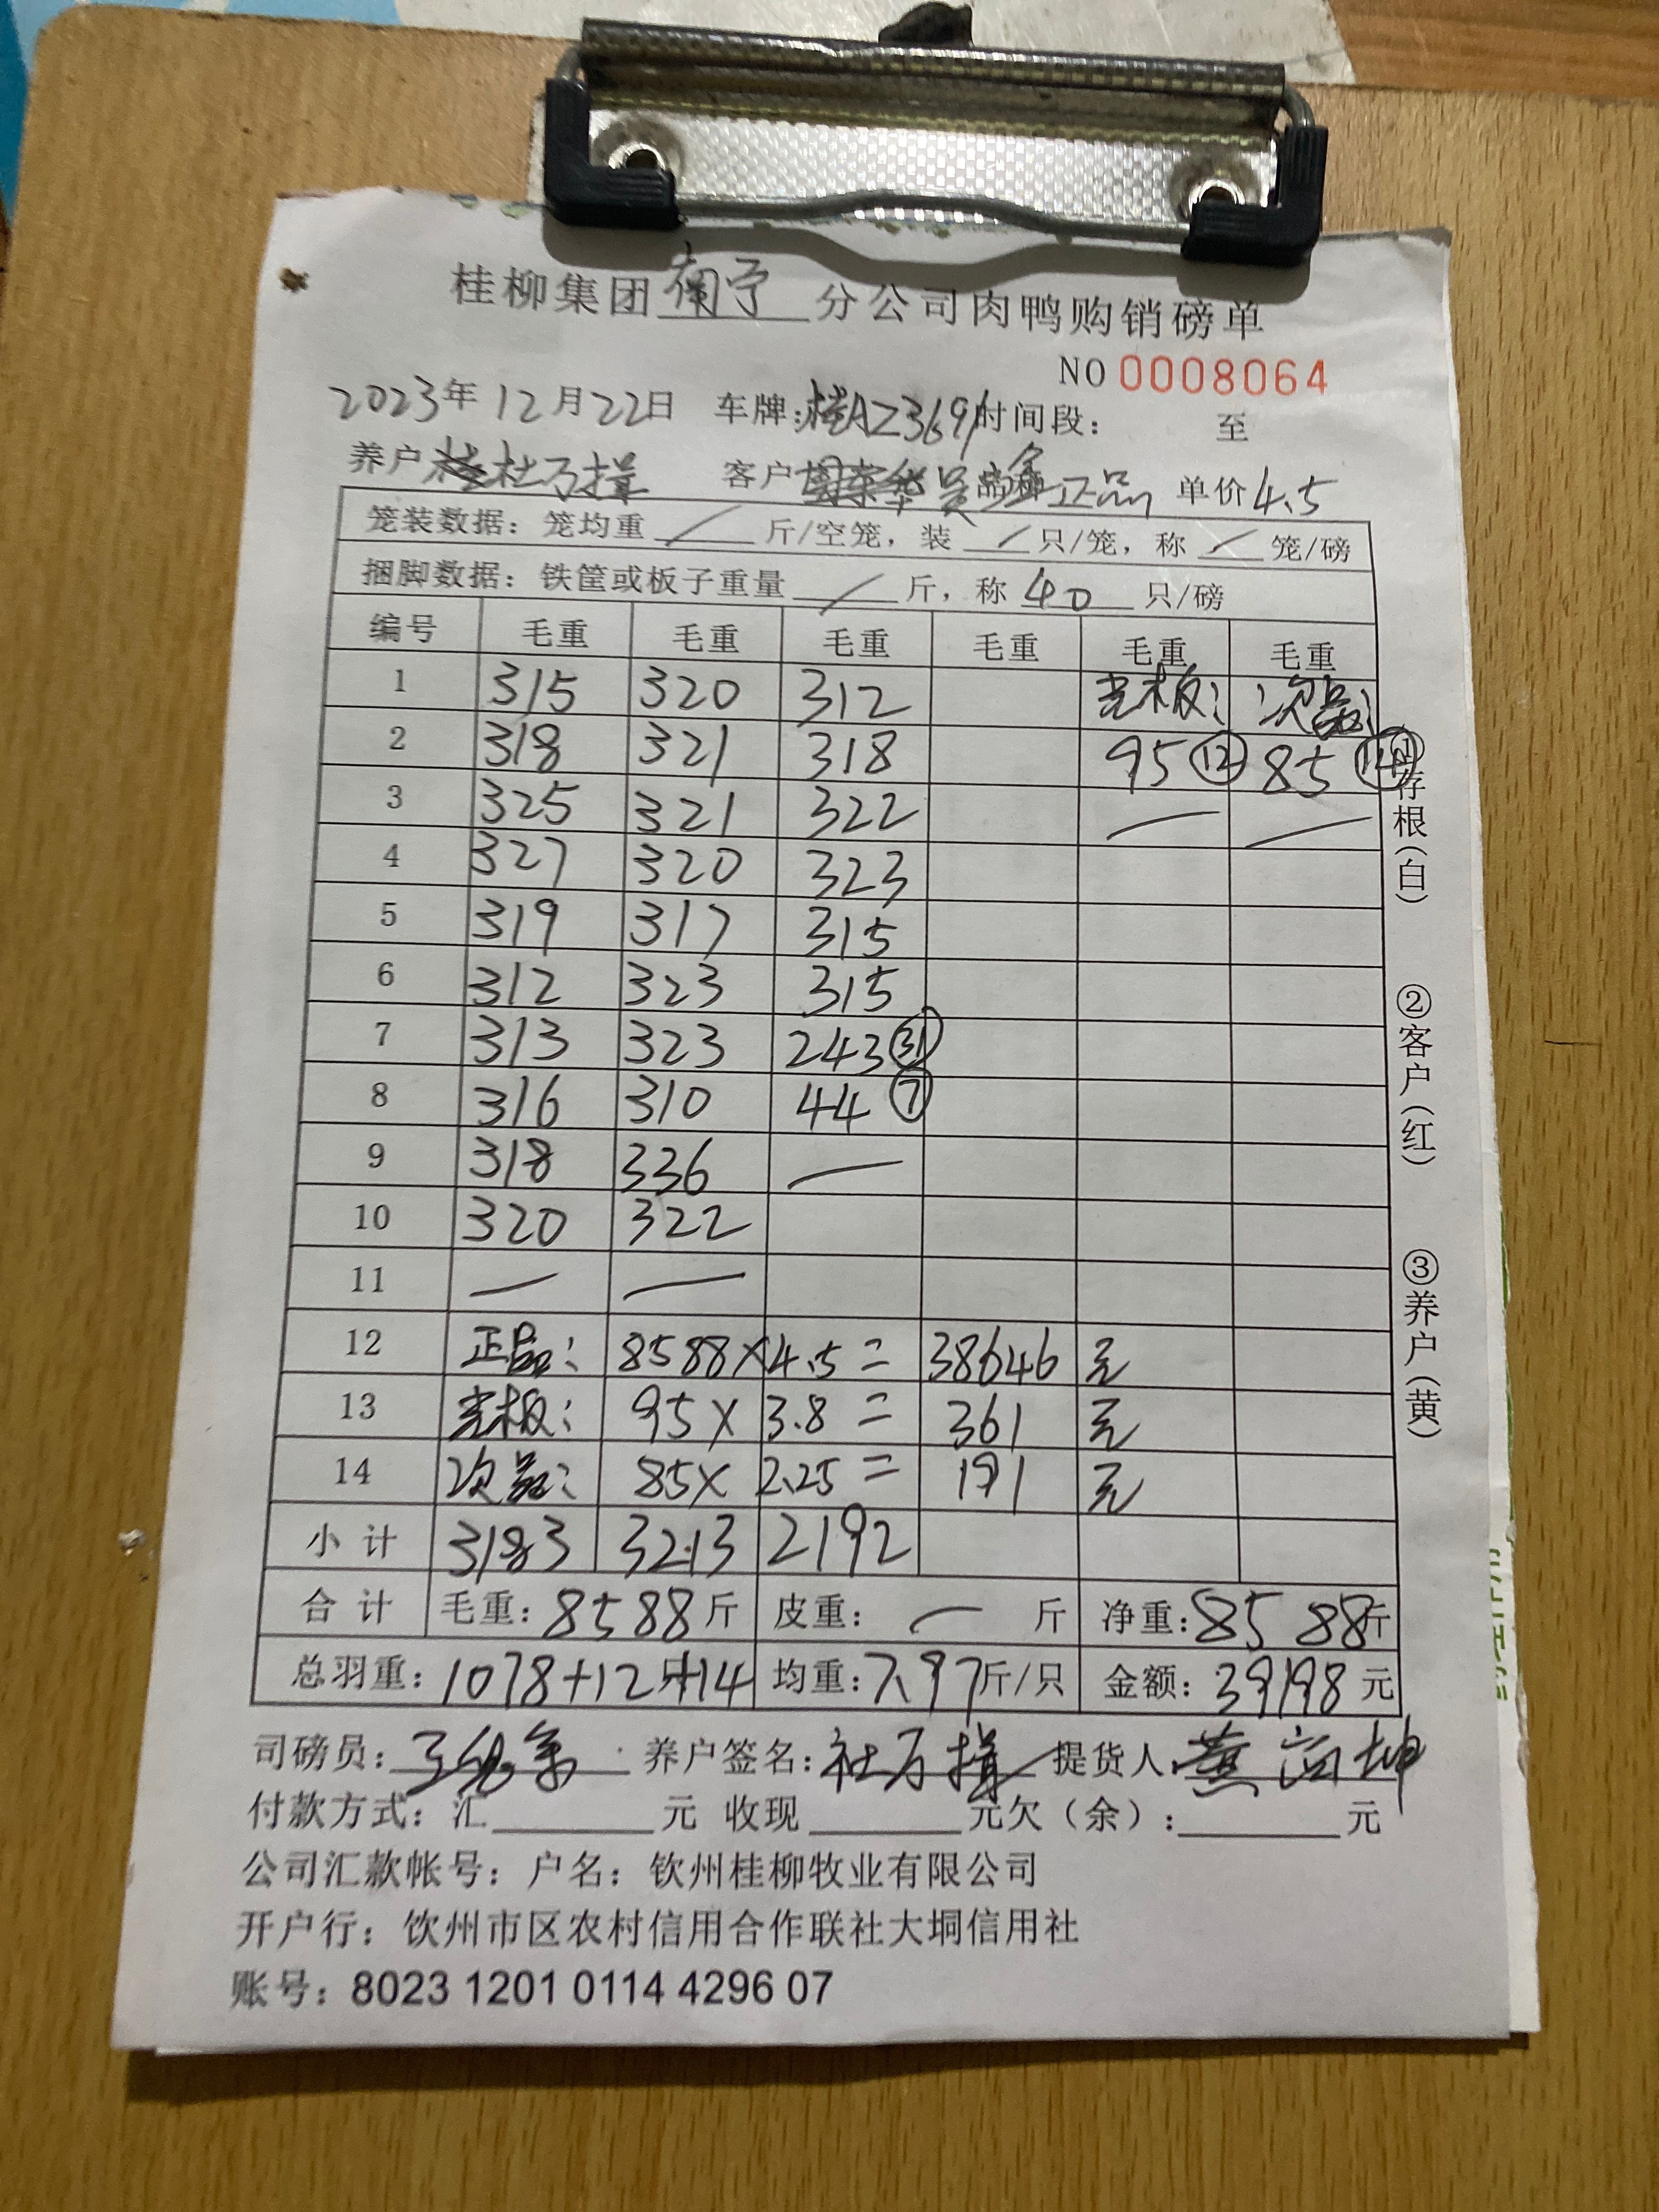 桂柳集团南宁分公司肉鸭购销磅单
NO 0008064
2023年12月22日 车牌:桂AZ3691 时间段: 至
养户 杜万揖 客户 吴 品种 正品 单价 4.5
笼装数据: 笼均重 / 斤/空笼, 装 / 只/笼, 称 / 笼/磅
捆脚数据: 铁筐或板子重量 / 斤, 称 40 只/磅
编号 毛重 毛重 毛重 毛重 毛重 毛重
1 315 320 312 光板: 次品:
2 318 321 318 95 ⑫ 85 ⑭
3 325 321 322 — —
4 327 320 323
5 319 317 315
6 312 323 315
7 313 323 243 ㉛
8 316 310 44 ⑦
9 318 336 —
10 320 322
11 — —
12 正品: 8588 × 4.5 = 38646 元
13 光板: 95 × 3.8 = 361 元
14 次品: 85 × 2.25 = 191 元
小计 3183 3213 2192
合计 毛重: 8588 斤 皮重: — 斤 净重: 8588 斤
总羽重: 1078+12+14 均重: 7.97 斤/只 金额: 39198 元
司磅员: 养户签名: 杜万揖 提货人: 黄
付款方式: 汇 元 收现 元欠(余): 元
公司汇款帐号: 户名: 钦州桂柳牧业有限公司
开户行: 饮州市区农村信用合作联社大垌信用社
账号: 8023 1201 0114 4296 07
①存根(白)
②客户(红)
③养户(黄)